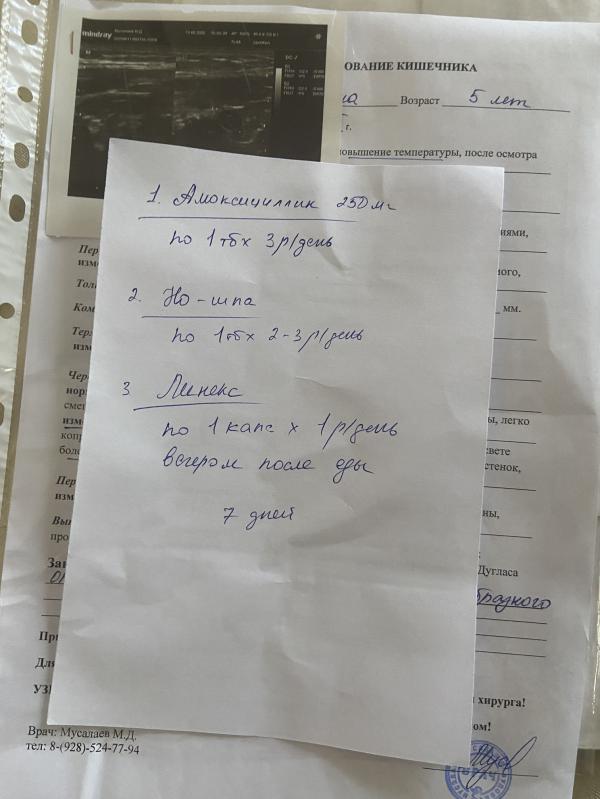 mindray
ОВАНИЕ КИШЕЧНИКА
Возраст 5 лет
г.
повышение температуры, после осмотра
1. Амоксициллин 250 мг
по 1 тб х 3 р/день
2. Но-шпа
по 1 тб х 2-3 р/день
3 Линекс
по 1 капс х 1 р/день
вечером после еды
7 дней
иями,
ного,
мм.
ы, легко
свете
стенок,
ны,
Дугласа
хирурга!
ом!
Пер
изм
Толи
Ком
Тер
изм
Чер
нор
сме
изме
коп
бол
Пер
изм
Вып
про
Зак
При
Для
УЗИ
Врач: Мусалаев М.Д.
тел: 8-(928)-524-77-94